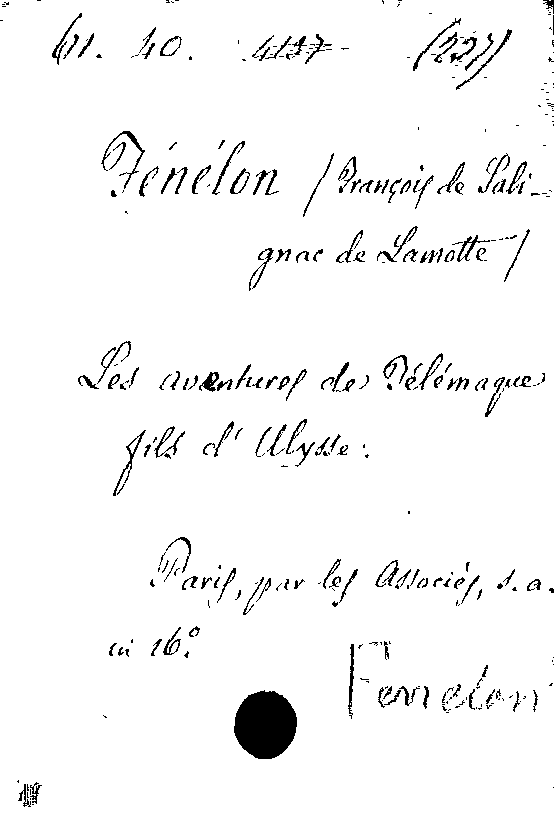 61. 40. 4137 (227)
Fénélon / François de Sali-
gnac de Lamotte /
Les aventures de Télémaque
fils d' Ulysse.
Paris, par les Associés, s. a.
in 16°.
Fenelon